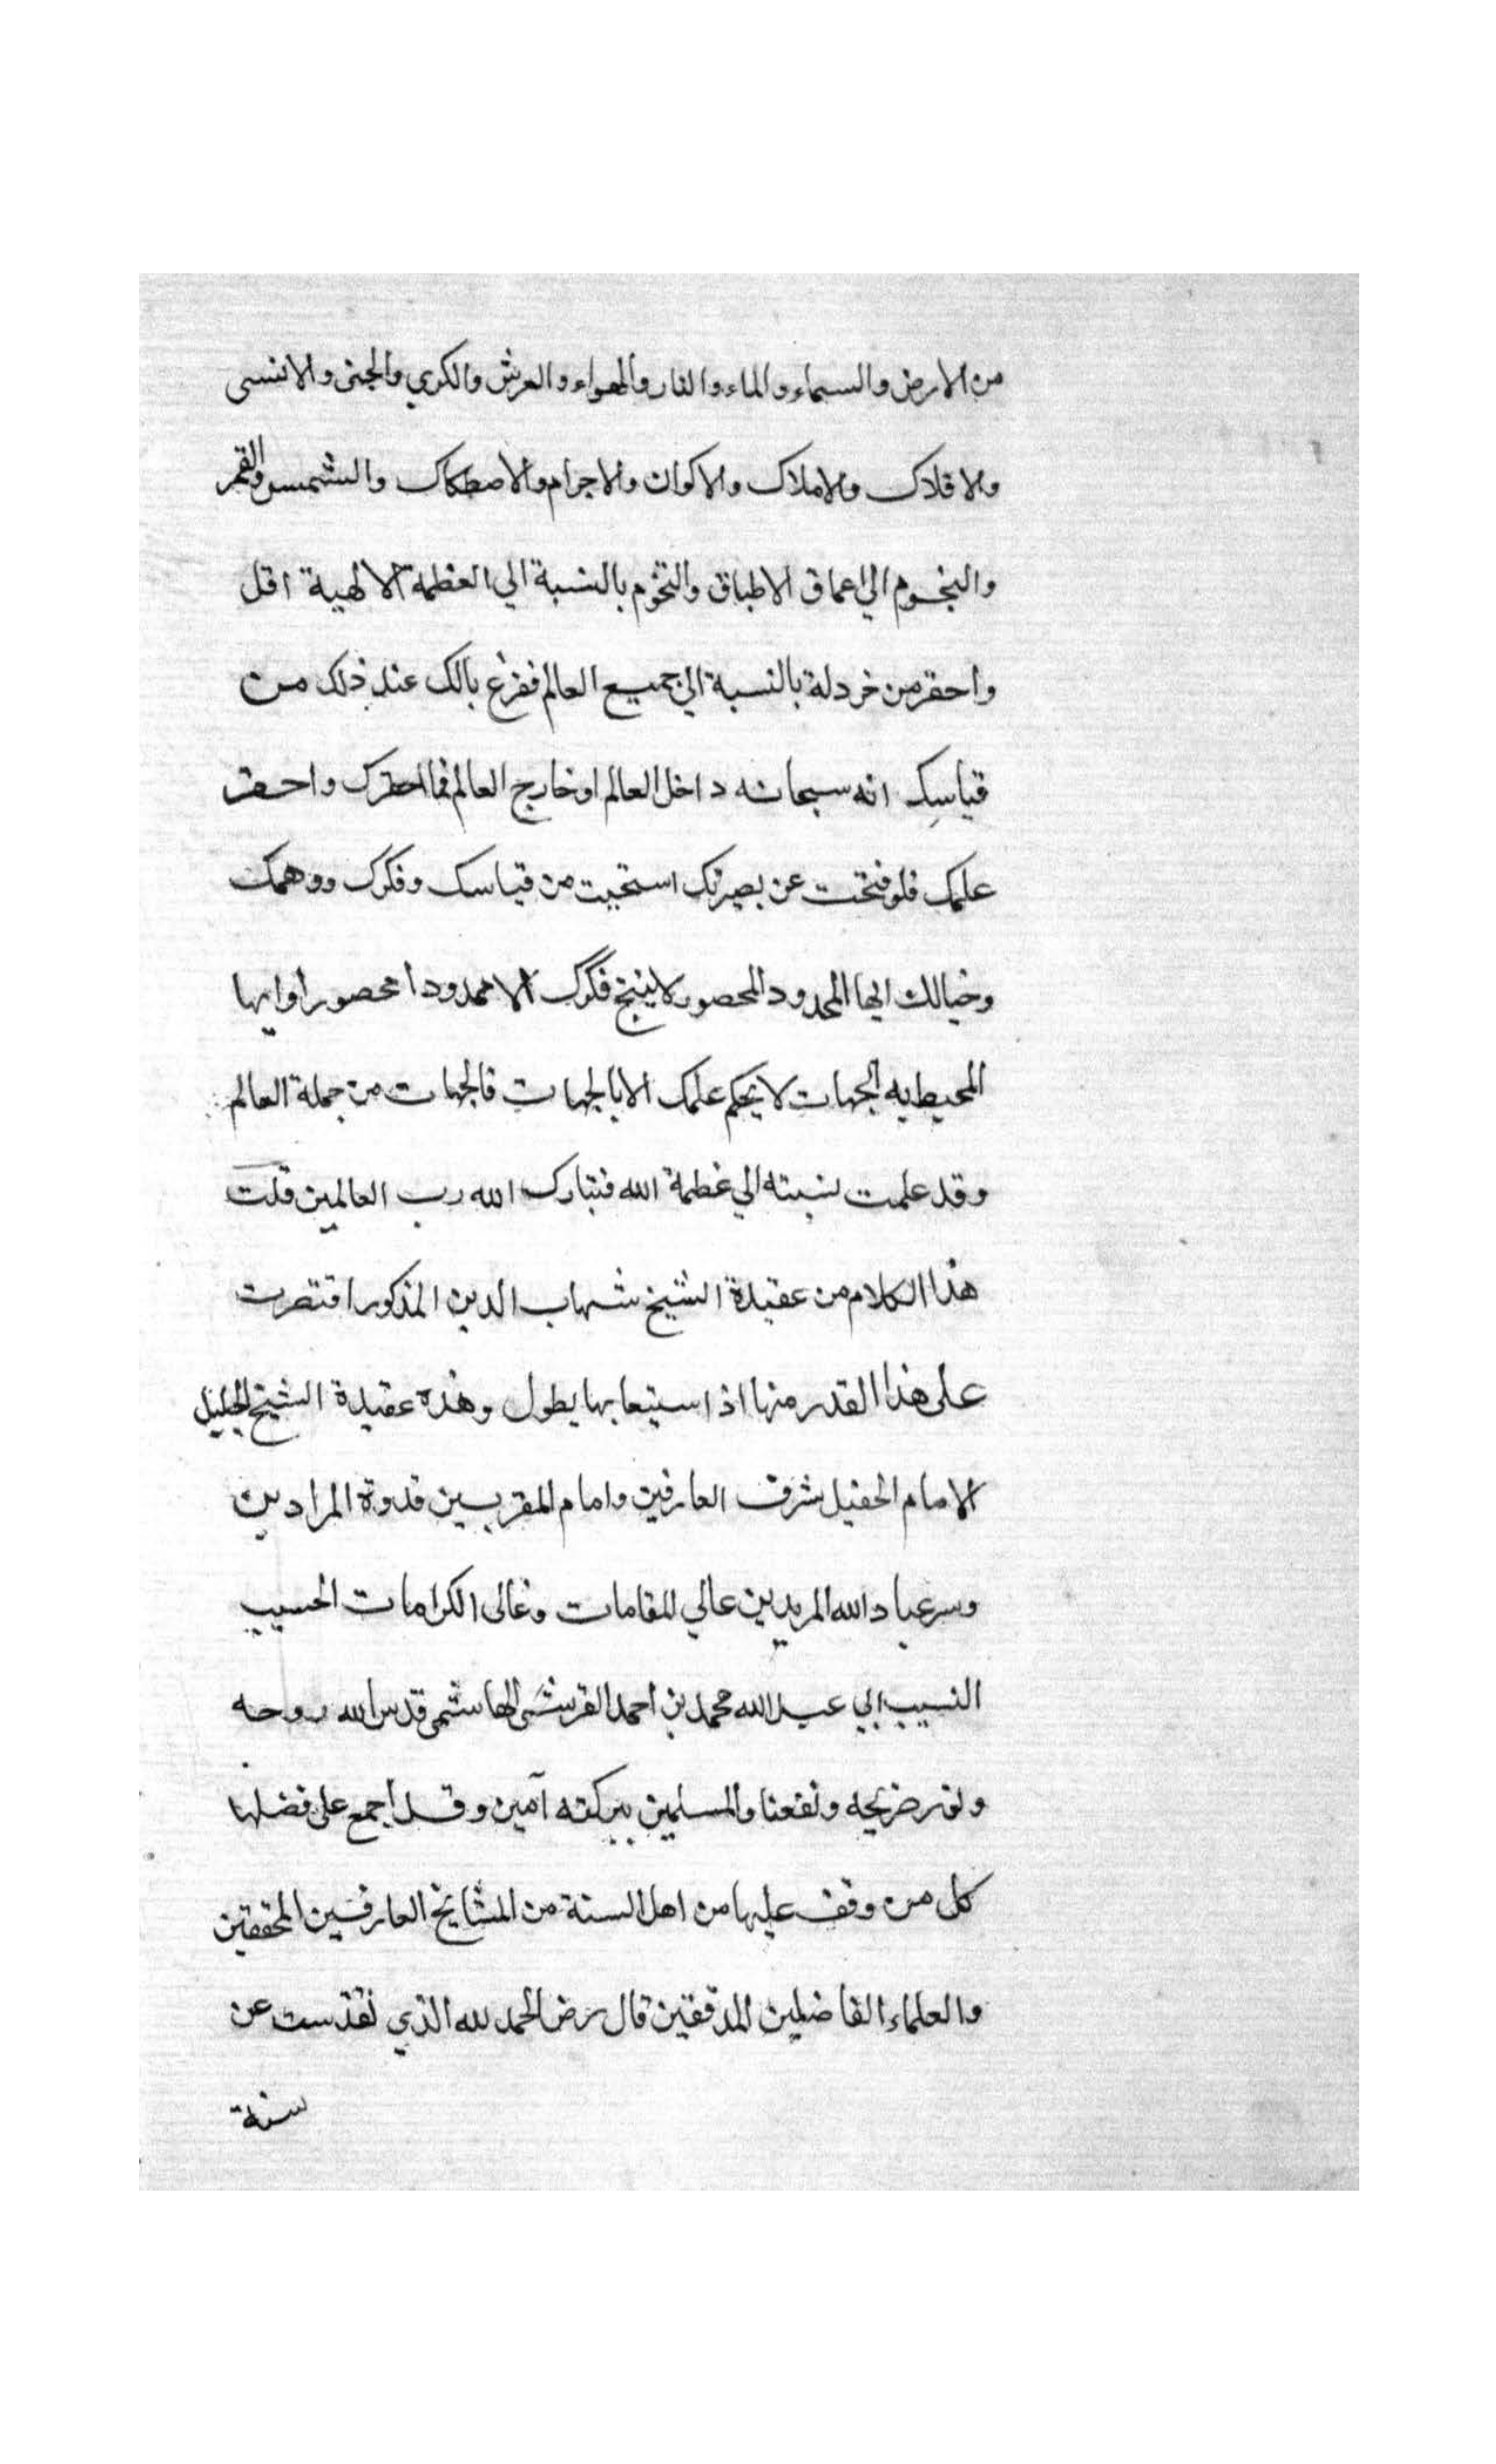 من الارض والسماء والماء والنار والهواء والعرش والكرسي والجنى والانسى
والافلاك والاملاك والاكوان والاجرام والاصطكاك والشمس والقمر
والنجوم الى اعماق الاطباق والتخوم بالنسبة الي العظمة الالهية اقل
واحقر من خردلة بالنسبة الي جميع العالم ففرغ بالك عند ذلك من
قياسك انه سبحانه داخل العالم او خارج العالم فما احقرك واحقر
علمك فلو فتحت عن بصيرتك استحييت من قياسك وفكرك ووهمك
وخيالك ايها المحدود المحصور لا ينتج فكرك الا محدودا محصورا وايها
المحيط به الجهات لا يحكم علمك الا بالجهات فالجهات من جملة العالم
وقد علمت نسبته الي عظمة الله فتبارك الله رب العالمين قلت
هذا الكلام من عقيدة الشيخ شهاب الدين المذكور اقتصرت
على هذا القدر منها اذ استيعابها يطول وهذه عقيدة الشيخ الجليل
الامام الحفيل شرف العارفين وامام المقربين قدوة المرادين
وسر عباد الله المريدين عالي المقامات وغالى الكرامات الحسيب
النسيب ابي عبد الله محمد بن احمد القرشى الهاشمى قدس الله روحه
ونور ضريحه ونفعنا والمسلمين ببركته آمين وقد اجمع على فضلها
كل من وقف عليها من اهل السنة من المشايخ العارفين المحققين
والعلماء الفاضلين المدققين قال رض الحمد لله الذي تقدست عن
سنة